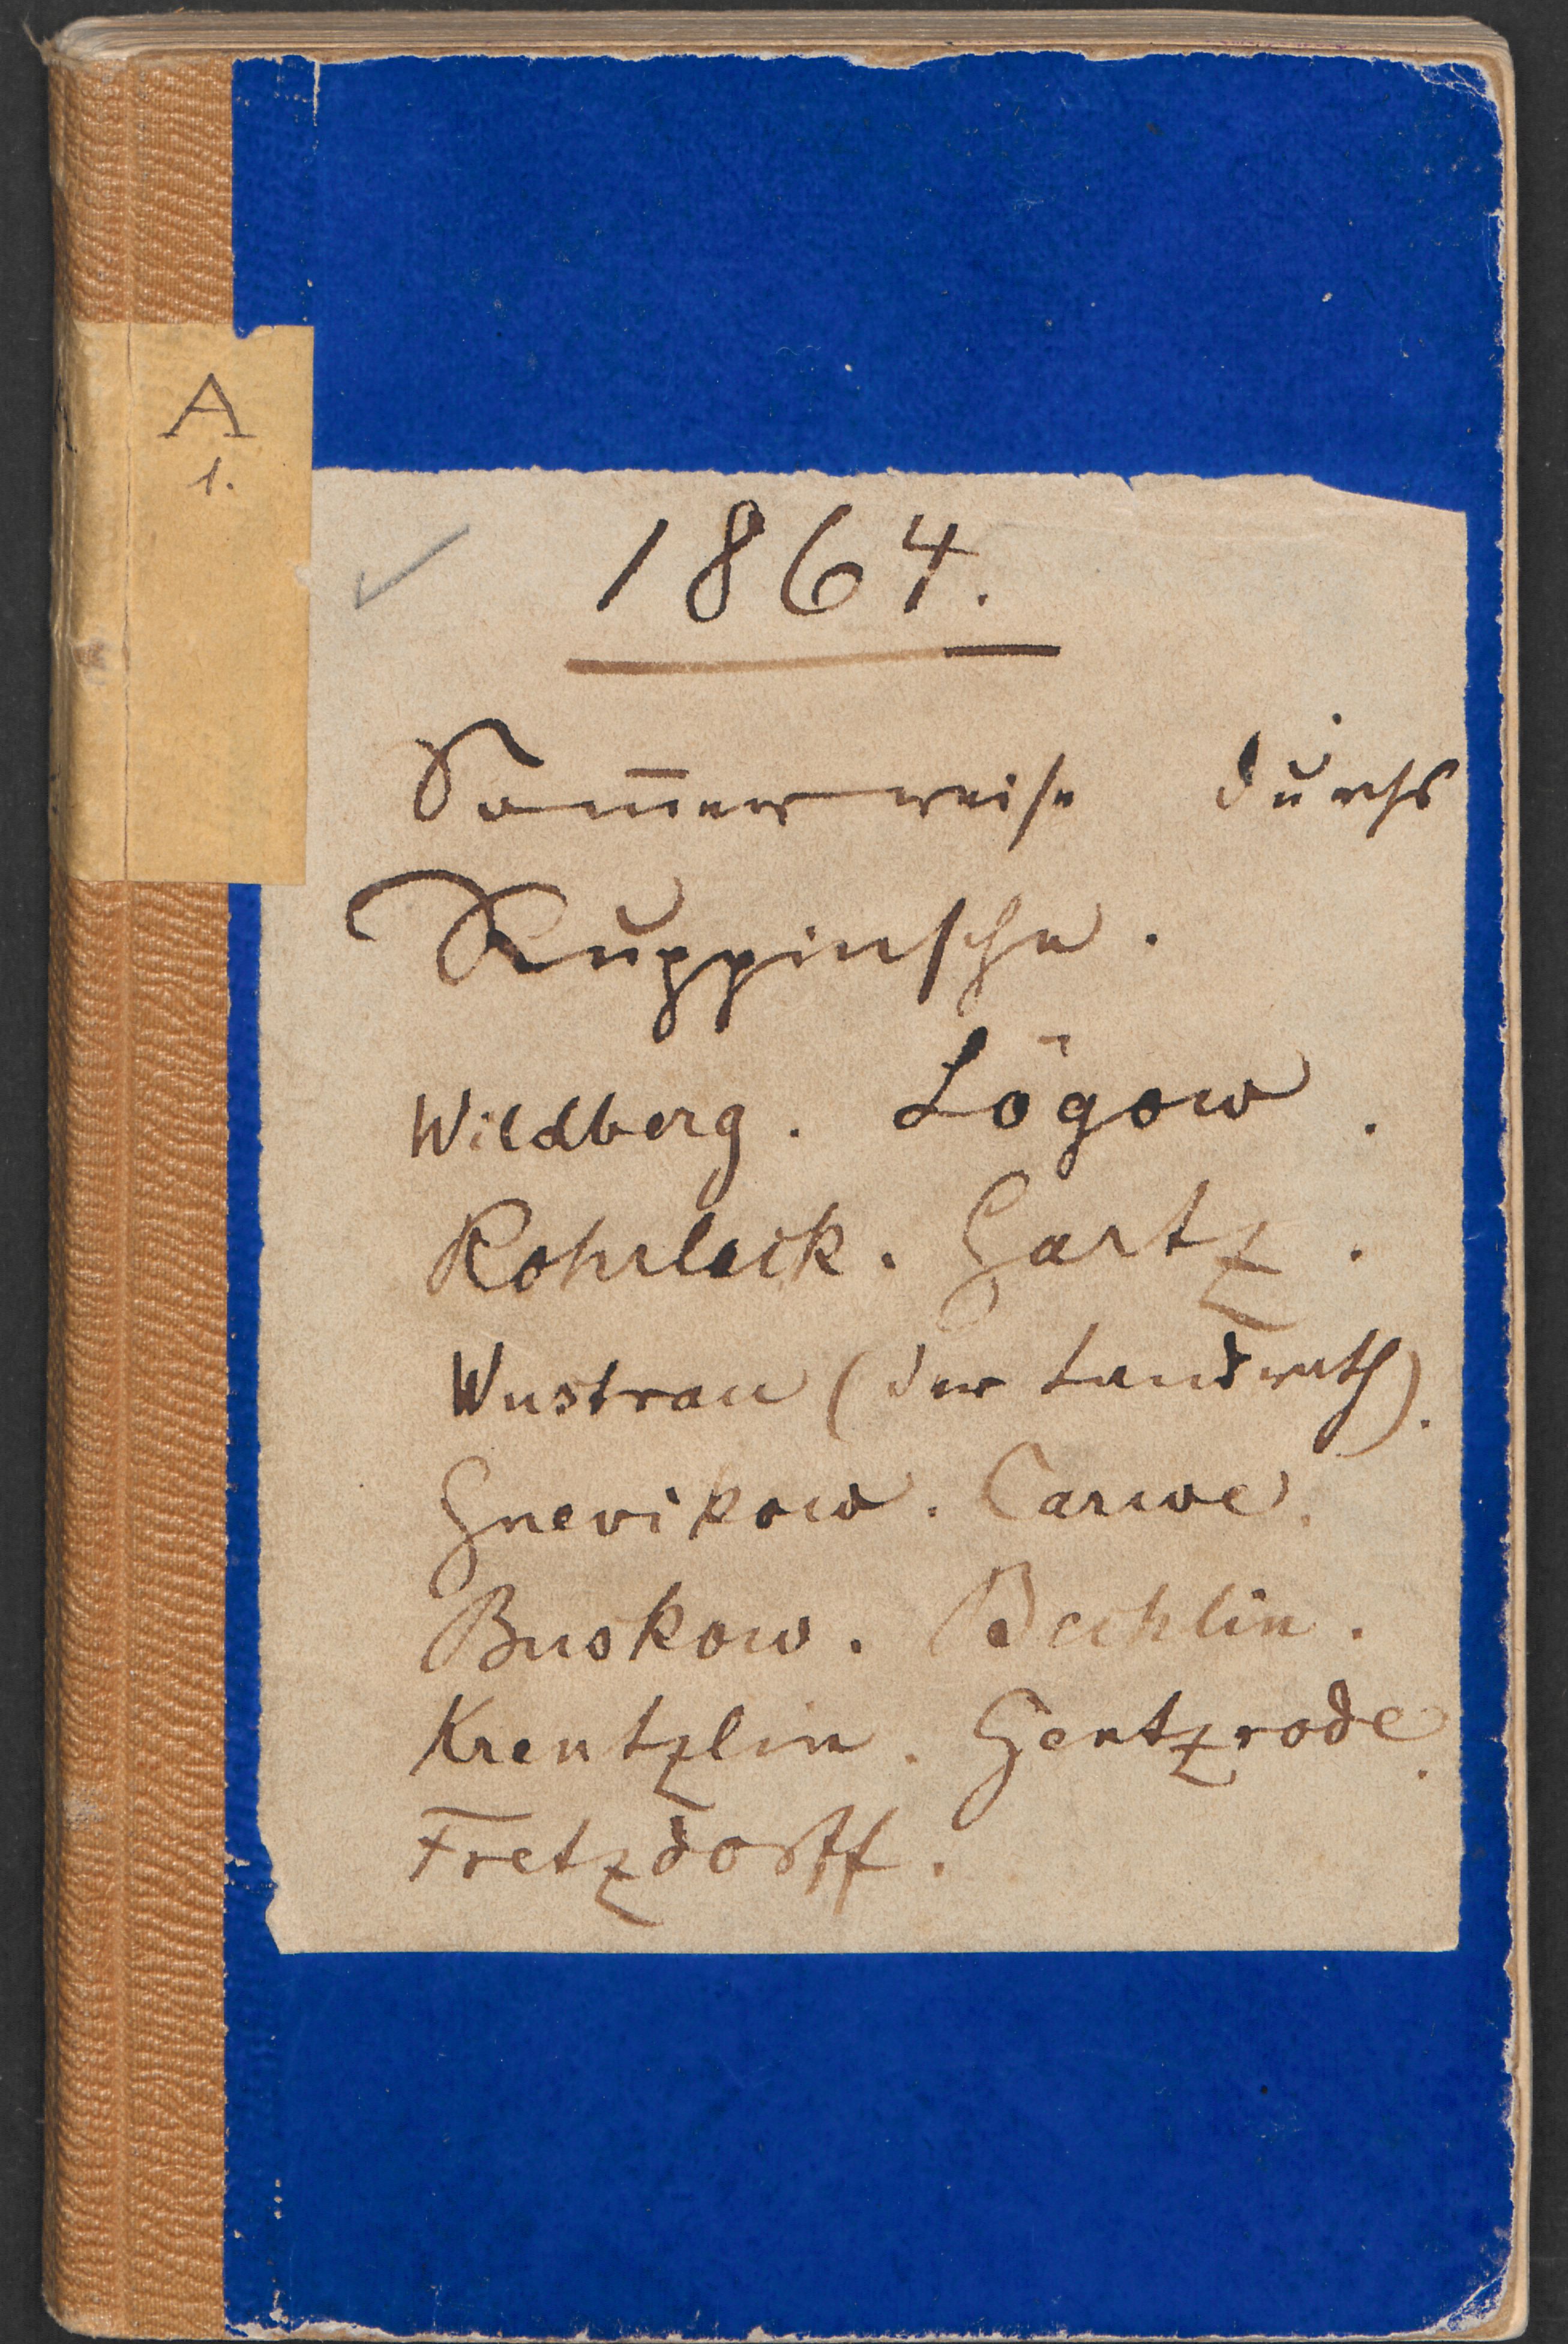 A
1.
1864.
Som̄erreise durchs
Ruppinsche.
Wildberg. Lögow.
Rohrlack. Gartz.
Wustrau (der Landrath).
Gnevikow. Carwe.
Buskow. Bechlin.
Krentzlin. Gentzrode.
Fretzdorff.